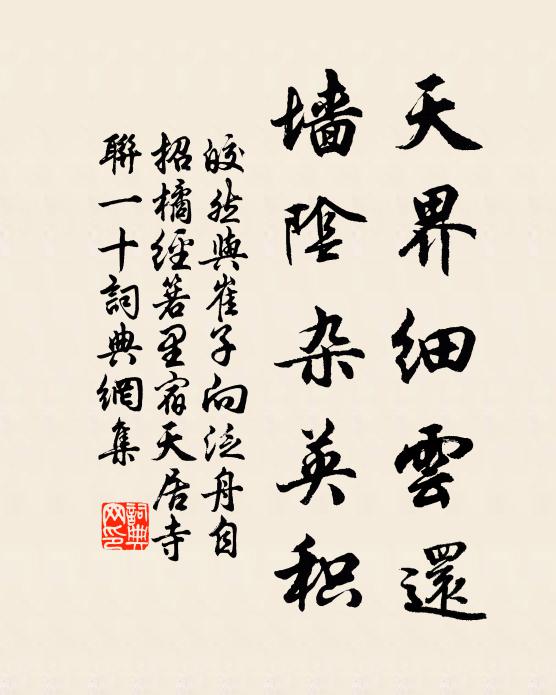 天界細雲還
墙陰杂英积
皎然與崔子向泛舟自
招橘經箬里宿天居寺
聯一十詞典網集
詞典
网印